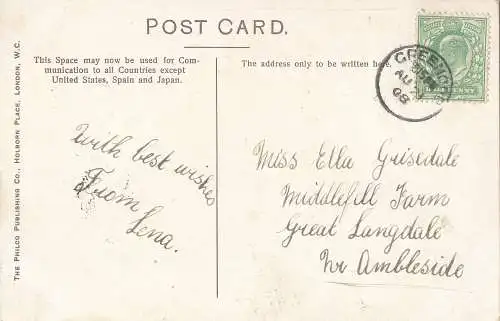 POST CARD.
This Space may now be used for Com-
munication to all Countries except
United States, Spain and Japan.
The address only to be written here.
THE PHILCO PUBLISHING CO., HOLBORN PLACE, LONDON, W.C.
With best wishes
From
Lena.
Miss Ella Grisedale
Middlefell Farm
Great Langdale
Nr Ambleside
AU
08
HALFPENNY